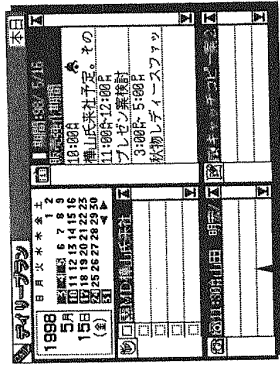 デイリープラン
本日
1998
5月
15日
(金)
日 月 火 水 木 金 土
1 2
6 7 8 9
10 11 12 13 14 15 16
17 18 19 20 21 22 23
24 25 26 27 28 29 30
31
期間:98/ 5/16
販売強化期間
10:00A
樺山氏来社予定。その
11:00A-12:00P
プレゼン案検討
3:00P- 5:00P
秋物レディースファッ
樺山氏来社
山田